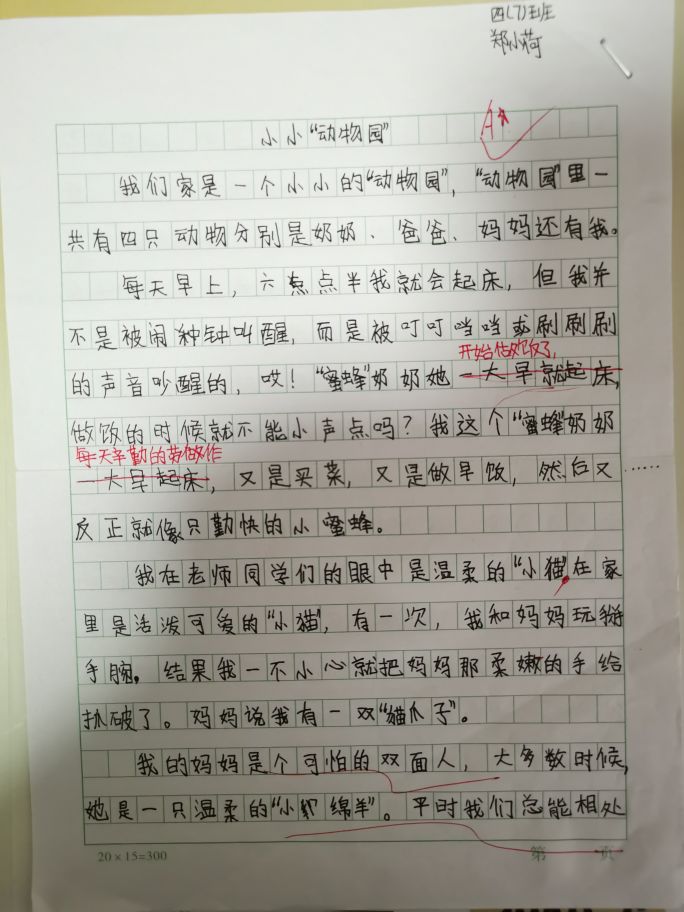 四(7)班
郑小荷
小小“动物园”
我们家是一个小小的“动物园”，“动物园”里一
共有四只动物分别是奶奶、爸爸、妈妈还有我。
每天早上，六点点半我就会起床，但我并
不是被闹种钟叫醒，而是被叮叮当当或刷刷刷
开始做饭了，
的声音吵醒的，哎！“蜜蜂”奶奶她一大早就起床，
做饭的时候就不能小声点吗？我这个“蜜蜂”奶奶
每天辛勤的劳做作
一大早起床，又是买菜，又是做早饭，然后又……
反正就像只勤快的小蜜蜂。
我在老师同学们的眼中是温柔的“小猫”在家
里是活泼可爱的“小猫”，有一次，我和妈妈玩掰
手腕，结果我一不小心就把妈妈那柔嫩的手给
抓破了。妈妈说我有一双“猫爪子”。
我的妈妈是个可怕的双面人，大多数时候，
她是一只温柔的“小绵羊”。平时我们总能相处
20×15=300
第 页